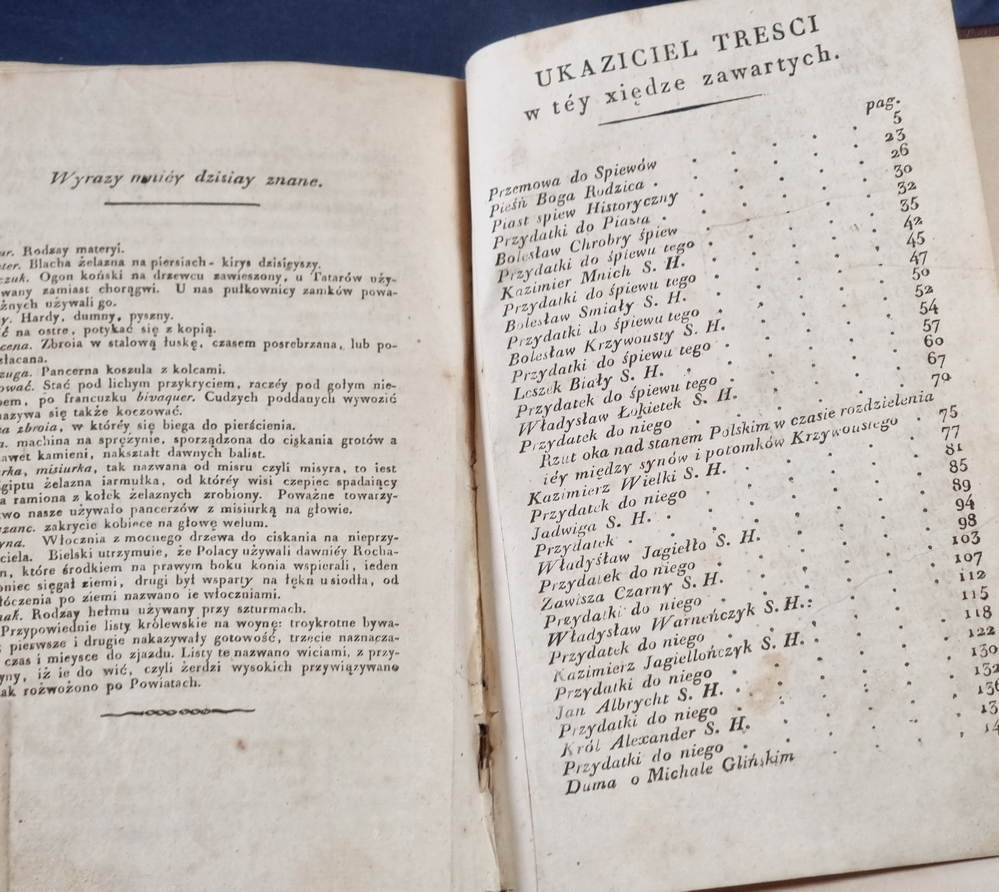 Wyrazy mniéy dzisiay znane.
Rodzay materyi.
Blacha żelazna na piersiach - kirys dzisieyszy.
Ogon koński na drzewcu zawieszony, u Tatarów uży-
wany zamiast chorągwi. U nas pułkownicy zamków powa-
żnych używali go.
Hardy, dumny, pyszny.
na ostre, potykać się z kopią.
Zbroia w stalową łuskę, czasem posrebrzana, lub po-
złacana.
Pancerna koszula z kolcami.
Stać pod lichym przykryciem, raczéy pod gołym nie-
bem, po francuzku bivaquer. Cudzych poddanych wywozić
nazywa się także koczować.
zbroia, w któréy się biega do pierścienia.
machina na sprężynie, sporządzona do ciskania grotów a
nawet kamieni, nakształt dawnych balist.
misiurka, tak nazwana od misru czyli misyra, to iest
Egiptu żelazna iarmułka, od któréy wisi czepiec spadaiący
na ramiona z kołek żelaznych zrobiony. Poważne towarzy-
stwo nasze używało pancerzów z misiurką na głowie.
zakrycie kobiece na głowę welum.
Włocznia z mocnego drzewa do ciskania na nieprzy-
iaciela. Bielski utrzymuie, że Polacy używali dawniéy Rocha-
tyn, które środkiem na prawym boku konia wspierali, ieden
koniec sięgał ziemi, drugi był wsparty na łęku usiodła, od
włóczenia po ziemi nazwano ie włóczniami.
Rodzay hełmu używany przy szturmach.
Przypowiednie listy królewskie na woynę: troykrotne bywa-
pierwsze i drugie nakazywały gotowość, trzecie naznacza-
czas i mieysce do zjazdu. Listy te nazwano wiciami, z przy-
czyny, iż ie do wić, czyli żerdzi wysokich przywiązywano
tak rozwożono po Powiatach.
UKAZICIEL TRESCI
w téy xiędze zawartych.
pag.
Przemowa do Spiewów . . . . 5
Pieśń Boga Rodzica . . . . 23
Piast spiew Historyczny . . . . 26
Przydatki do Piasta . . . . 30
Bolesław Chrobry śpiew . . . . 32
Przydatki do śpiewu tego . . . . 35
Kazimierz Mnich S. H. . . . . 42
Przydatki do śpiewu tego . . . . 45
Bolesław Smiały S. H. . . . . 47
Przydatki do śpiewu tego . . . . 50
Bolesław Krzywousty S. H. . . . . 52
Przydatki do śpiewu tego . . . . 54
Leszek Biały S. H. . . . . 57
Przydatek do śpiewu tego . . . . 60
Władysław Łokietek S. H. . . . . 67
Przydatek do niego . . . . 70
Rzut oka nad stanem Polskim w czasie rozdzielenia
iéy między synów i potomków Krzywoustego . 75
Kazimierz Wielki S. H. . . . . 77
Przydatek do niego . . . . 81
Jadwiga S. H. . . . . 85
Przydatek . . . . 89
Władysław Jagiełło S. H. . . . . 94
Przydatek do niego . . . . 98
Zawisza Czarny S. H. . . . . 103
Przydatki do niego . . . . 107
Władysław Warneńczyk S. H.: . . . . 112
Przydatek do niego . . . . 115
Kazimierz Jagiellończyk S. H. . . . . 118
Przydatki do niego . . . . 122
Jan Albrycht S. H. . . . . 130
Przydatki do niego . . . . 132
Król Alexander S. H. . . . . 136
Przydatki do niego . . . .
Duma o Michale Glińskim . . . .